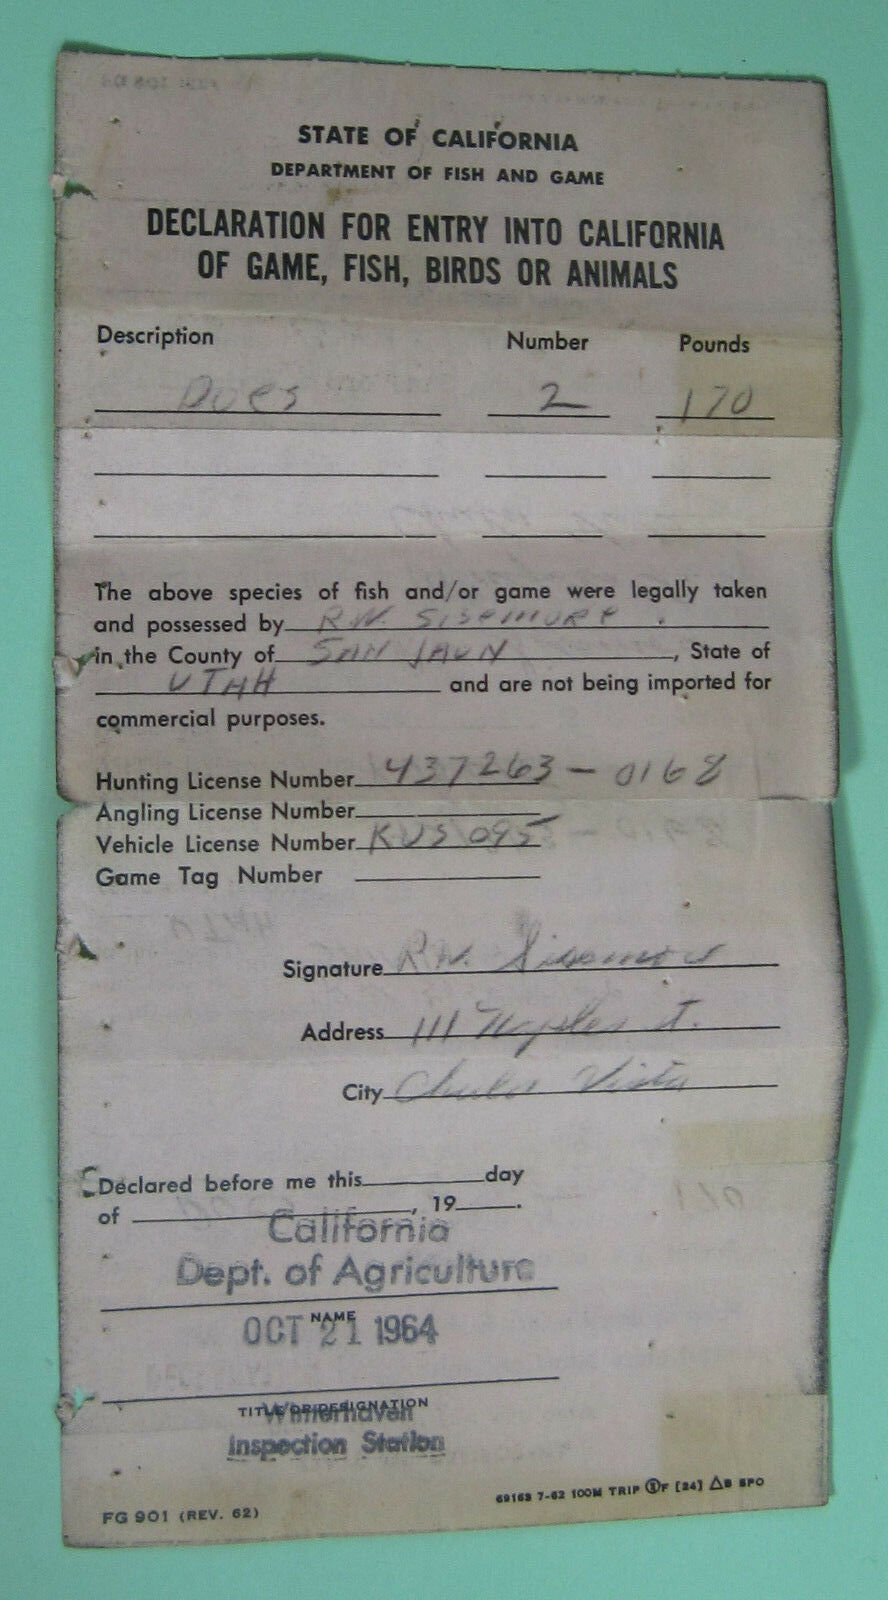 STATE OF CALIFORNIA
DEPARTMENT OF FISH AND GAME
DECLARATION FOR ENTRY INTO CALIFORNIA
OF GAME, FISH, BIRDS OR ANIMALS
Description Number Pounds
Does 2 170
The above species of fish and/or game were legally taken
and possessed by R.W. SISEMORE
in the County of SAN JAUN, State of
UTAH and are not being imported for
commercial purposes.
Hunting License Number 437263 - 0168
Angling License Number
Vehicle License Number KUS 095
Game Tag Number
Signature R.W. Sisemore
Address 111
City Chula Vista
Declared before me this day
of , 19 .
California
Dept. of Agriculture
NAME
OCT 21 1964
TITLE OR DESIGNATION
Winterhaven
Inspection Station
69163 7-62 100M TRIP F [24] △B SPO
FG 901 (REV. 62)